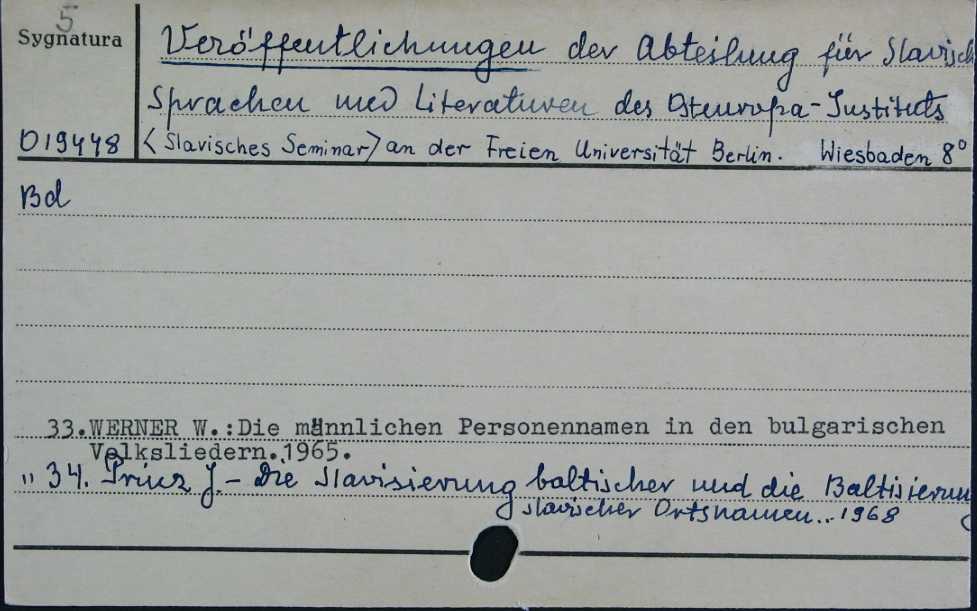 5
Sygnatura
Veröffentlichungen der Abteilung für Slavisch
Sprachen und Literaturen des Osteuropa-Instituts
D19448 <Slavisches Seminar> an der Freien Universität Berlin. Wiesbaden 8°
Bd
33.WERNER W.:Die männlichen Personennamen in den bulgarischen
Volksliedern.1965.
" 34. Prinz J. - Die Slavisierung baltischer und die Baltisierung
slavischer Ortsnamen... 1968